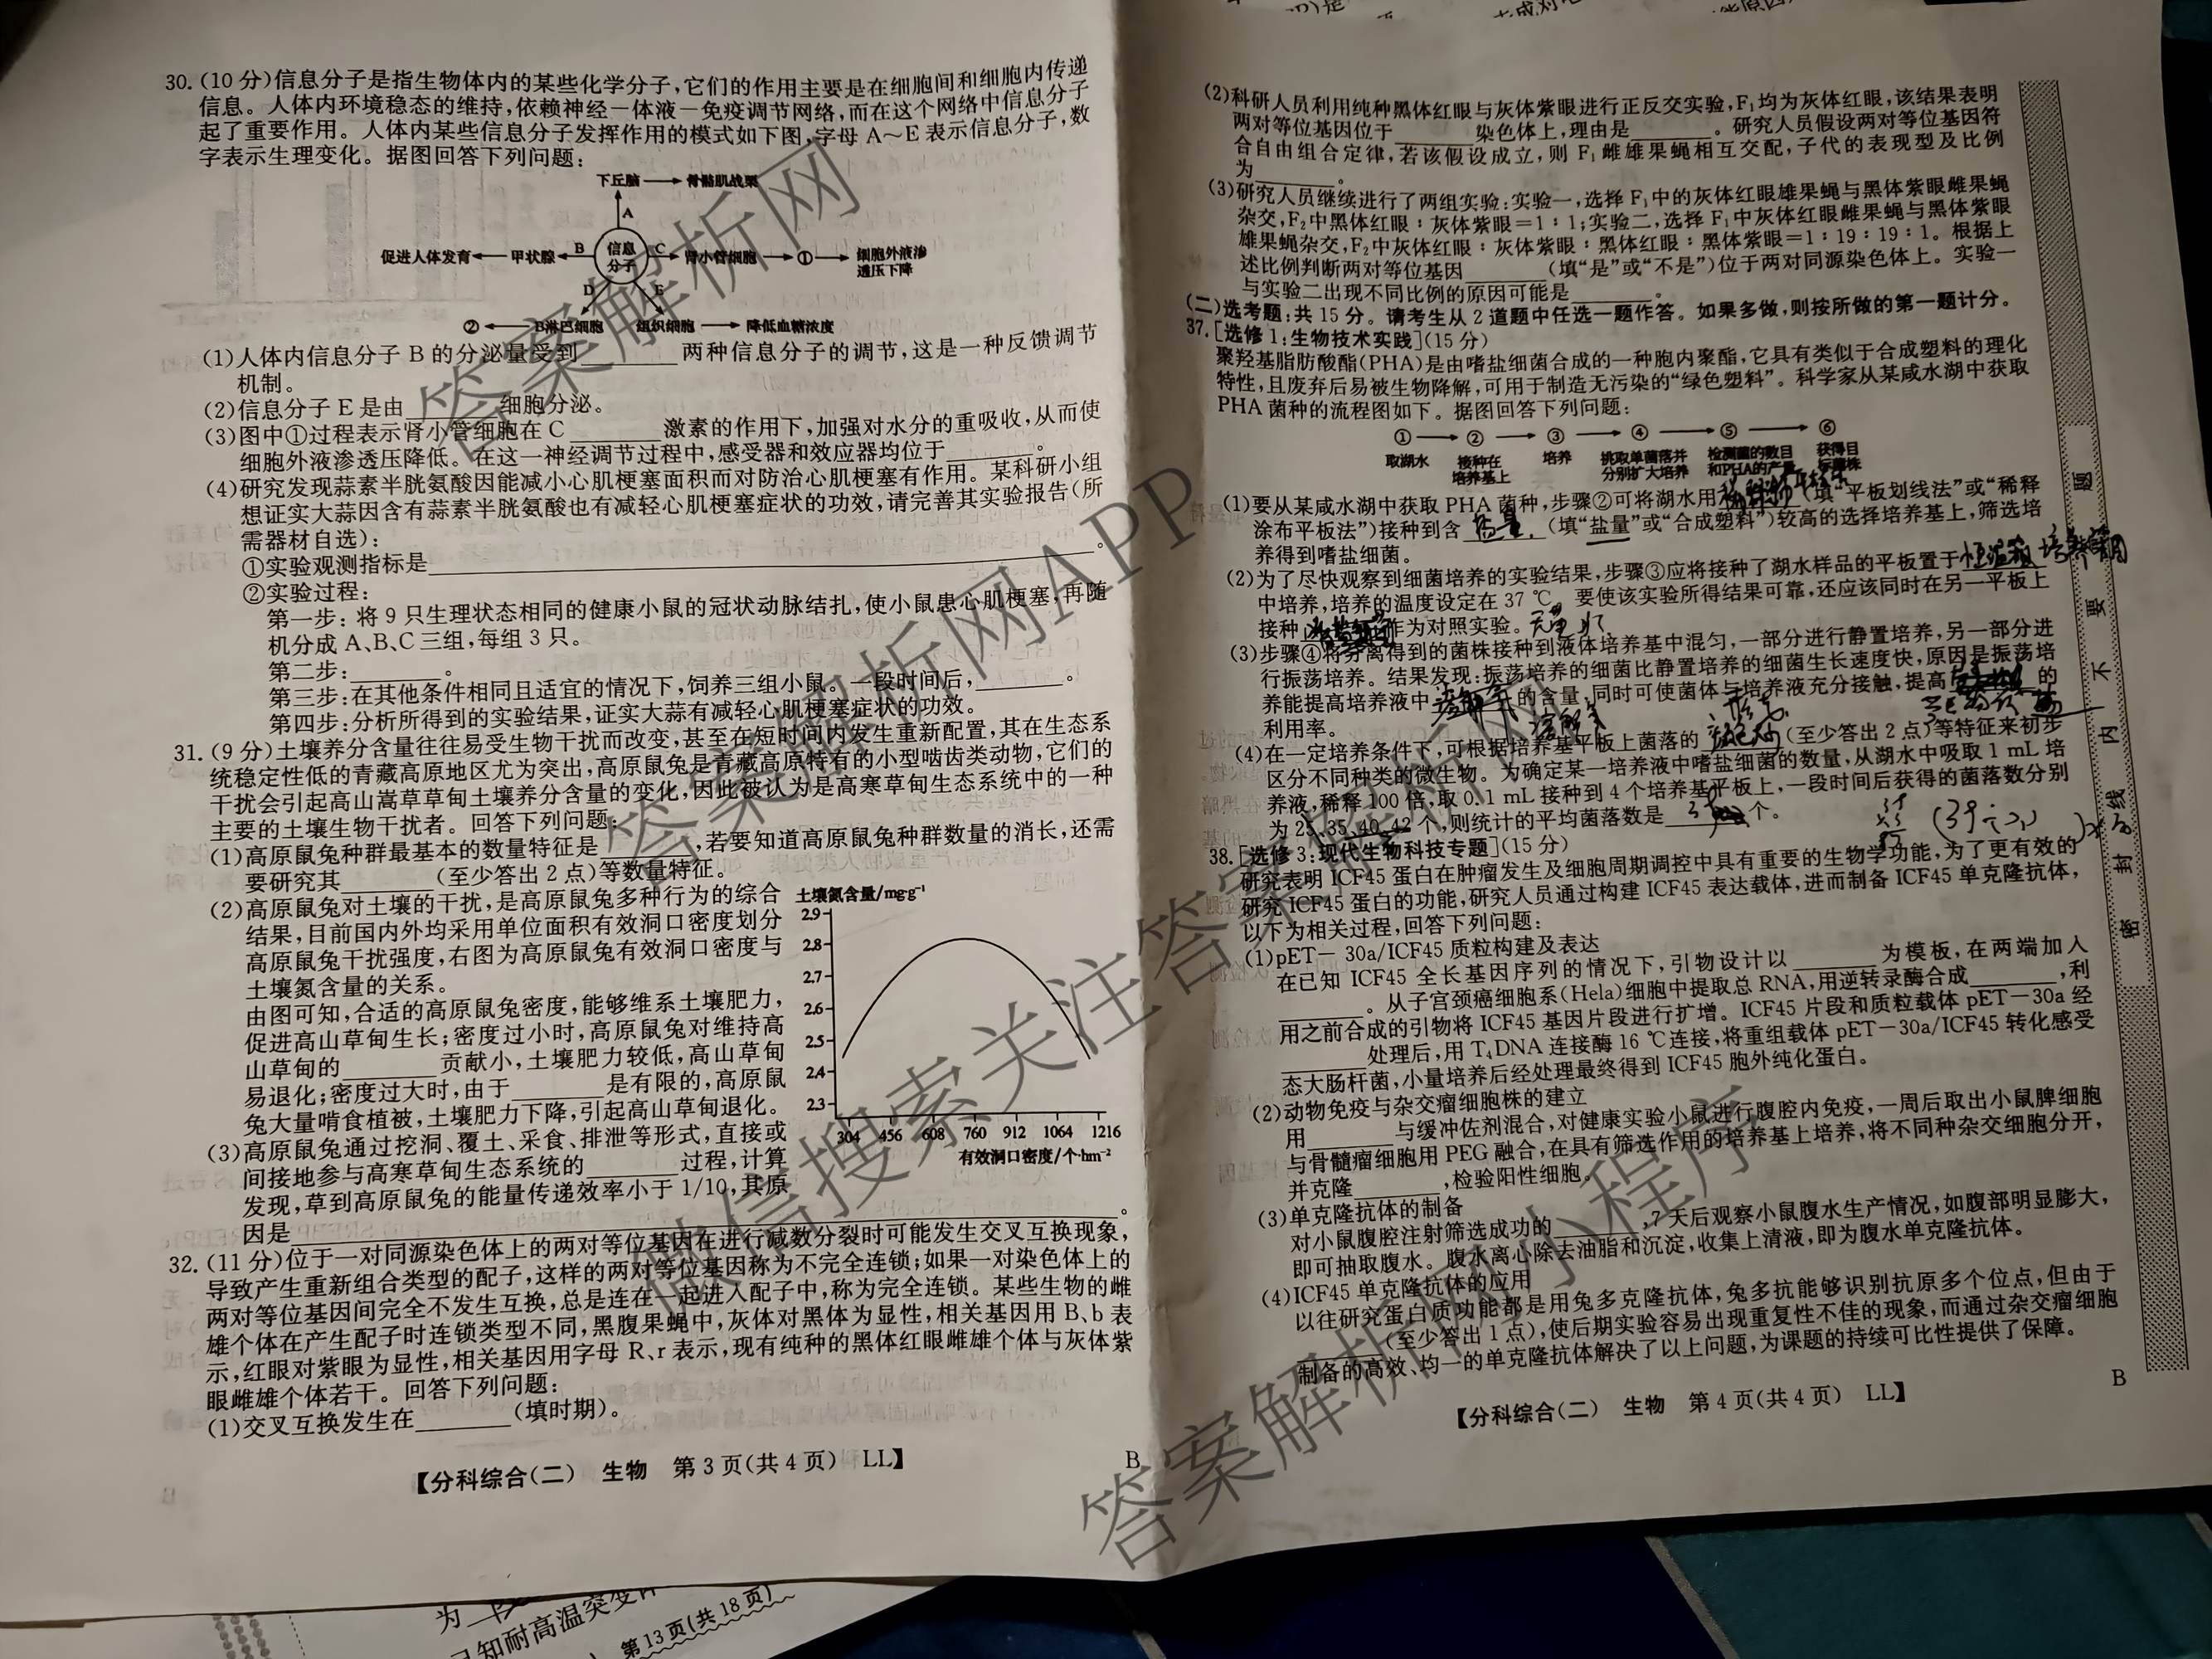 30. (10 分)信息分子是指生物体内的某些化学分子,它们的作用主要是在细胞间和细胞内传递
信息。人体内环境稳态的维持,依赖神经－体液－免疫调节网络,而在这个网络中信息分子
起了重要作用。人体内某些信息分子发挥作用的模式如下图,字母 A～E 表示信息分子,数
字表示生理变化。据图回答下列问题:
下丘脑 → 骨骼肌战栗
A
促进人体发育 ← 甲状腺 ← B 信息分子 C → 肾小管细胞 → ① → 细胞外液渗透压下降
D E
② ← B淋巴细胞 组织细胞 → 降低血糖浓度
(1)人体内信息分子 B 的分泌量受到________两种信息分子的调节,这是一种反馈调节
机制。
(2)信息分子 E 是由________细胞分泌。
(3)图中①过程表示肾小管细胞在 C ________激素的作用下,加强对水分的重吸收,从而使
细胞外液渗透压降低。在这一神经调节过程中,感受器和效应器均位于________。
(4)研究发现蒜素半胱氨酸因能减小心肌梗塞面积而对防治心肌梗塞有作用。某科研小组
想证实大蒜因含有蒜素半胱氨酸也有减轻心肌梗塞症状的功效,请完善其实验报告(所
需器材自选):
①实验观测指标是________。
②实验过程:
第一步: 将 9 只生理状态相同的健康小鼠的冠状动脉结扎,使小鼠患心肌梗塞,再随
机分成 A、B、C 三组,每组 3 只。
第二步:________。
第三步:在其他条件相同且适宜的情况下,饲养三组小鼠。一段时间后,________。
第四步:分析所得到的实验结果,证实大蒜有减轻心肌梗塞症状的功效。
31. (9 分)土壤养分含量往往易受生物干扰而改变,甚至在短时间内发生重新配置,其在生态系
统稳定性低的青藏高原地区尤为突出,高原鼠兔是青藏高原特有的小型啮齿类动物,它们的
干扰会引起高山嵩草草甸土壤养分含量的变化,因此被认为是高寒草甸生态系统中的一种
主要的土壤生物干扰者。回答下列问题:
(1)高原鼠兔种群最基本的数量特征是________,若要知道高原鼠兔种群数量的消长,还需
要研究其________(至少答出 2 点)等数量特征。
(2)高原鼠兔对土壤的干扰,是高原鼠兔多种行为的综合
结果,目前国内外均采用单位面积有效洞口密度划分
高原鼠兔干扰强度,右图为高原鼠兔有效洞口密度与
土壤氮含量的关系。
由图可知,合适的高原鼠兔密度,能够维系土壤肥力,
促进高山草甸生长;密度过小时,高原鼠兔对维持高
山草甸的________贡献小,土壤肥力较低,高山草甸
易退化;密度过大时,由于________是有限的,高原鼠
兔大量啃食植被,土壤肥力下降,引起高山草甸退化。
土壤氮含量/mg·g⁻¹
2.9
2.8
2.7
2.6
2.5
2.4
2.3
304 456 608 760 912 1064 1216
有效洞口密度/个·hm⁻²
(3)高原鼠兔通过挖洞、覆土、采食、排泄等形式,直接或
间接地参与高寒草甸生态系统的________过程,计算
发现,草到高原鼠兔的能量传递效率小于 1/10,其原
因是________。
32. (11 分)位于一对同源染色体上的两对等位基因在进行减数分裂时可能发生交叉互换现象,
导致产生重新组合类型的配子,这样的两对等位基因称为不完全连锁;如果一对染色体上的
两对等位基因间完全不发生互换,总是连在一起进入配子中,称为完全连锁。某些生物的雌
雄个体在产生配子时连锁类型不同,黑腹果蝇中,灰体对黑体为显性,相关基因用 B、b 表
示,红眼对紫眼为显性,相关基因用字母 R、r 表示,现有纯种的黑体红眼雌雄个体与灰体紫
眼雌雄个体若干。回答下列问题:
(1)交叉互换发生在________(填时期)。
【分科综合(二) 生物 第 3 页(共 4 页) LL】
B
(2)科研人员利用纯种黑体红眼与灰体紫眼进行正反交实验,F₁均为灰体红眼,该结果表明
两对等位基因位于________染色体上,理由是________。研究人员假设两对等位基因符
合自由组合定律,若该假设成立,则 F₁雌雄果蝇相互交配,子代的表现型及比例
为________。
(3)研究人员继续进行了两组实验:实验一,选择 F₁中的灰体红眼雄果蝇与黑体紫眼雌果蝇
杂交,F₂中黑体红眼：灰体紫眼＝1：1;实验二,选择 F₁中灰体红眼雌果蝇与黑体紫眼
雄果蝇杂交,F₂中灰体红眼：灰体紫眼：黑体红眼：黑体紫眼＝1：19：19：1。根据上
述比例判断两对等位基因________(填“是”或“不是”)位于两对同源染色体上。实验一
与实验二出现不同比例的原因可能是________。
(二)选考题:共 15 分。请考生从 2 道题中任选一题作答。如果多做,则按所做的第一题计分。
37. [选修 1:生物技术实践](15 分)
聚羟基脂肪酸酯(PHA)是由嗜盐细菌合成的一种胞内聚酯,它具有类似于合成塑料的理化
特性,且废弃后易被生物降解,可用于制造无污染的“绿色塑料”。科学家从某咸水湖中获取
PHA 菌种的流程图如下。据图回答下列问题:
① → ② → ③ → ④ → ⑤ → ⑥
取湖水 接种在培养基上 培养 挑取单菌落并分别扩大培养 检测菌的数目和PHA的产量 获得目标菌株
(1)要从某咸水湖中获取 PHA 菌种,步骤②可将湖水用________(填“平板划线法”或“稀释
涂布平板法”)接种到含 盐量 (填“盐量”或“合成塑料”)较高的选择培养基上,筛选培
养得到嗜盐细菌。
(2)为了尽快观察到细菌培养的实验结果,步骤③应将接种了湖水样品的平板置于 恒温箱
中培养,培养的温度设定在 37 ℃。要使该实验所得结果可靠,还应该同时在另一平板上
接种________作为对照实验。
(3)步骤④将分离得到的菌株接种到液体培养基中混匀,一部分进行静置培养,另一部分进
行振荡培养。结果发现:振荡培养的细菌比静置培养的细菌生长速度快,原因是振荡培
养能提高培养液中________的含量,同时可使菌体与培养液充分接触,提高________的
利用率。 溶解氧
(4)在一定培养条件下,可根据培养基平板上菌落的________(至少答出 2 点)等特征来初步
区分不同种类的微生物。为确定某一培养液中嗜盐细菌的数量,从湖水中吸取 1 mL 培
养液,稀释 100 倍,取 0.1 mL 接种到 4 个培养基平板上,一段时间后获得的菌落数分别
为 25、35、40、42 个,则统计的平均菌落数是________个。
38. [选修 3:现代生物科技专题](15 分)
研究表明 ICF45 蛋白在肿瘤发生及细胞周期调控中具有重要的生物学功能,为了更有效的
研究 ICF45 蛋白的功能,研究人员通过构建 ICF45 表达载体,进而制备 ICF45 单克隆抗体,
以下为相关过程,回答下列问题:
(1)pET－30a/ICF45 质粒构建及表达
在已知 ICF45 全长基因序列的情况下,引物设计以________为模板,在两端加入
________。从子宫颈癌细胞系(Hela)细胞中提取总 RNA,用逆转录酶合成________,利
用之前合成的引物将 ICF45 基因片段进行扩增。ICF45 片段和质粒载体 pET－30a 经
________处理后,用 T₄DNA 连接酶 16 ℃连接,将重组载体 pET－30a/ICF45 转化感受
态大肠杆菌,小量培养后经处理最终得到 ICF45 胞外纯化蛋白。
(2)动物免疫与杂交瘤细胞株的建立
用________与缓冲佐剂混合,对健康实验小鼠进行腹腔内免疫,一周后取出小鼠脾细胞
与骨髓瘤细胞用 PEG 融合,在具有筛选作用的培养基上培养,将不同种杂交细胞分开,
并克隆________,检验阳性细胞。
(3)单克隆抗体的制备
对小鼠腹腔注射筛选成功的________,7 天后观察小鼠腹水生产情况,如腹部明显膨大,
即可抽取腹水。腹水离心除去油脂和沉淀,收集上清液,即为腹水单克隆抗体。
(4)ICF45 单克隆抗体的应用
以往研究蛋白质功能都是用兔多克隆抗体,兔多抗能够识别抗原多个位点,但由于
________(至少答出 1 点),使后期实验容易出现重复性不佳的现象,而通过杂交瘤细胞
制备的高效、均一的单克隆抗体解决了以上问题,为课题的持续可比性提供了保障。
【分科综合(二) 生物 第 4 页(共 4 页) LL】
B
密 封 线 内 不 要 题
答案解析网
微信搜索关注答案解析网APP
答案解析网
答案解析网小程序
第 13 页(共 18 页)